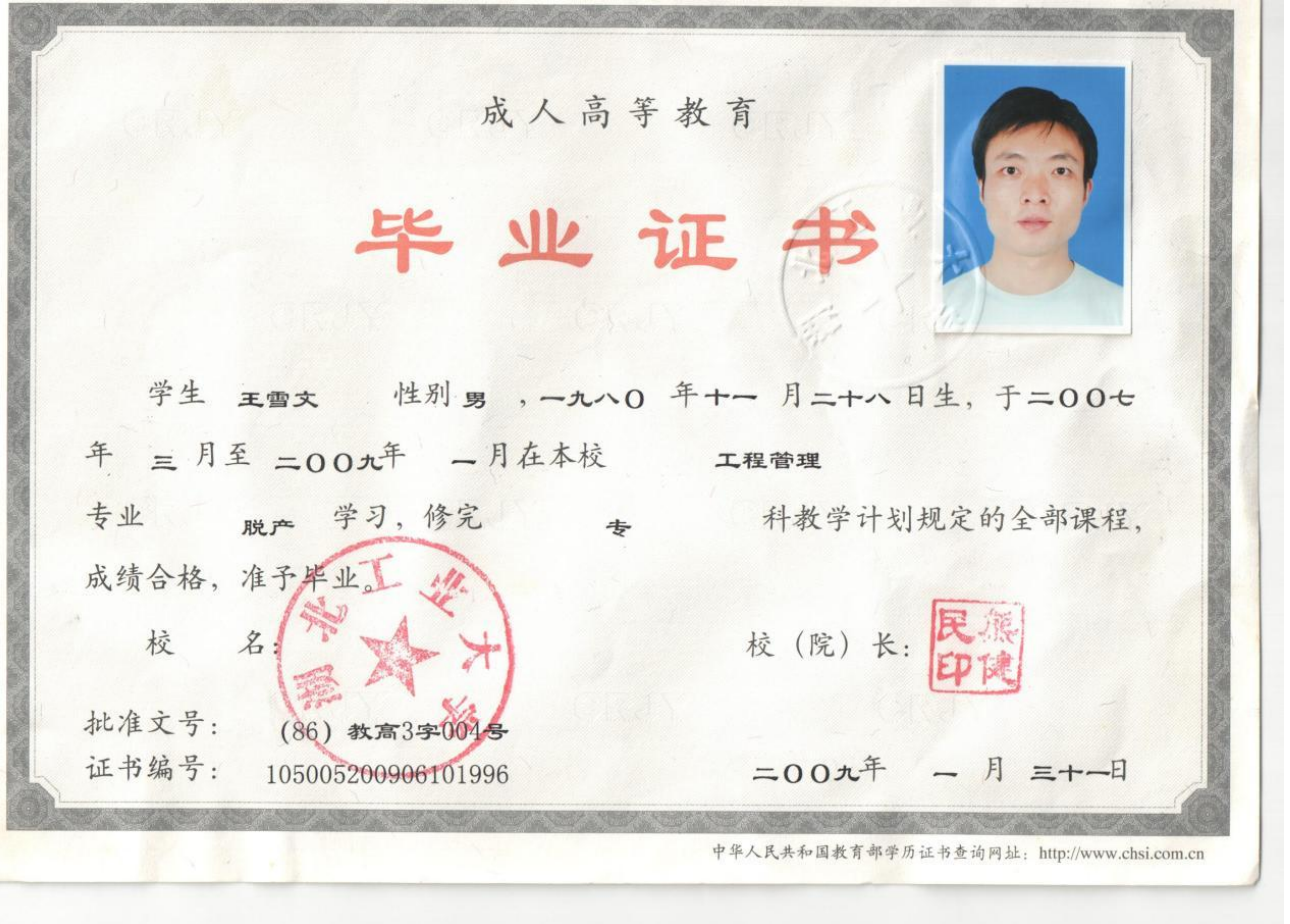 成人高等教育
毕业证书
学生 王雪文 性别 男 ，一九八〇 年十一 月二十八 日生，于二〇〇七
年 三 月至 二〇〇九年 一月在本校 工程管理
专业 脱产 学习，修完 专 科教学计划规定的全部课程，
成绩合格，准予毕业。
湖北工业大学
校 名： 校（院）长：
熊健民印
批准文号： (86) 教高3字004号
证书编号： 105005200906101996 二〇〇九年 一 月 三十一日
中华人民共和国教育部学历证书查询网址：http://www.chsi.com.cn